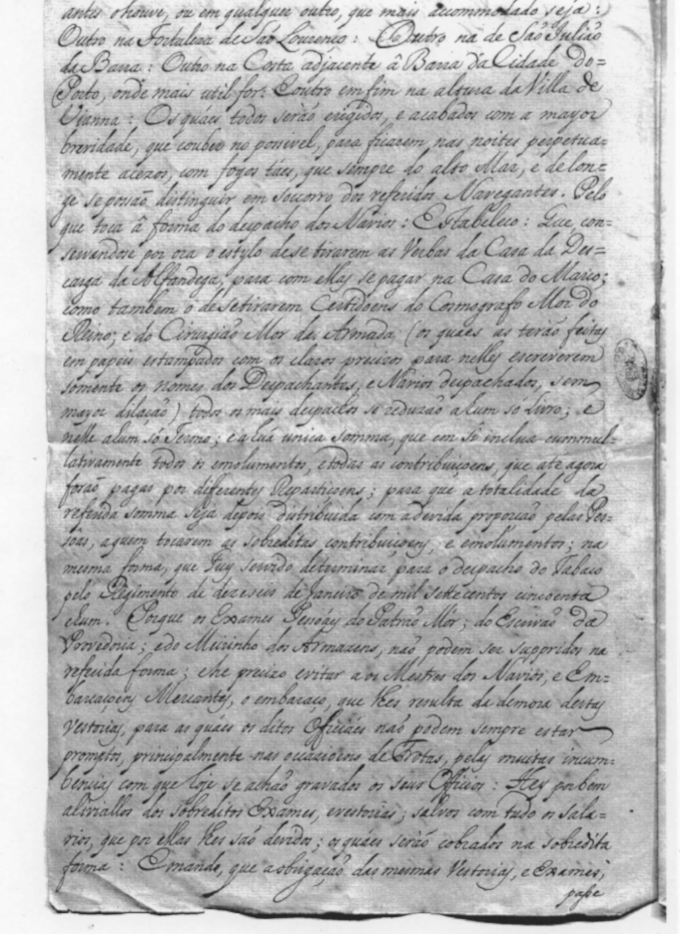 antes o houve, ou em qualquer outro, que mais accommodado seja:
Outro na Fortaleza de São Lourenço: Outro na de São Julião
da Barra: Outro na Costa adjacente â Barra da Cidade do=
Porto, onde mais util for: E outro em fim na altura da Villa de
Vianna: Os quáes todos serão erigidos, e acabados com a mayor
brevidade, que couber no possivel, para ficarem nas noites perpetua-
mente acezos, com fogos táes, que sempre do alto Mar, e de lon-
ge se possão distinguir em soccorro dos referidos Navegantes. Pelo
que toca â forma do despacho dos Navios: Estabeleço: Que, con-
servandose por ora o estylo de se tirarem as Verbas da Casa da Des=
carga da Alfandega, para com ellas se pagar na Casa do Marco;
como tambem o de se tirarem Certidoens do Cosmografo Mor do
Reino; e do Cirurgião Mor da Armada (os quáes as terão feitas
em papeis estampados com os claros precizos para nelles escreverem
somente os nomes dos Despachantes, e Navios despachados, sem
mayor dilação) todos os mais despachos se reduzão a hum só Livro; e
nelle a hum só Termo; e a huã unica somma, que em si inclua cummul-
lativamente todos os emolumentos, e todas as contribuiçoens, que ate agora
forão pagas por differentes Repartiçoens; para que a totalidade da
referida somma seja depois distribuida com a devida proporção pelas Pes-
soas, a quem tocarem as sobreditas contribuiçoens, e emolumentos; na
mesma forma, que Fuy servido determinar para o despacho do Tabaco
pelo Regimento de dezeseis de Janeiro de mil settecentos cincoenta
e hum. Porque os Exames Pessoáes do Patrão Mór; do Escrivão da
Provedoria; e do Meirinho dos Armazens, não podem ser suppridos na
referida forma; e he precizo evitar a os Mestres dos Navios, e Em-
barcaçoens Mercantes, o embaraço, que lhes resulta da demora destas
Vestorias, para as quáes os ditos Officiáes não podem sempre estar
promptos, principalmente nas occazioens de Frotas, pelas muitas incum-
bencias com que hoje se achão gravados os seus Officios: Hey por bem
alivialos dos sobreditos Exames, e vestorias; salvos com tudo os sala-
rios, que por ellas lhes são devidos; os quáes serão cobrados na sobredita
forma: E mando, que a obrigação das mesmas Vestorias, e Exames;
passe